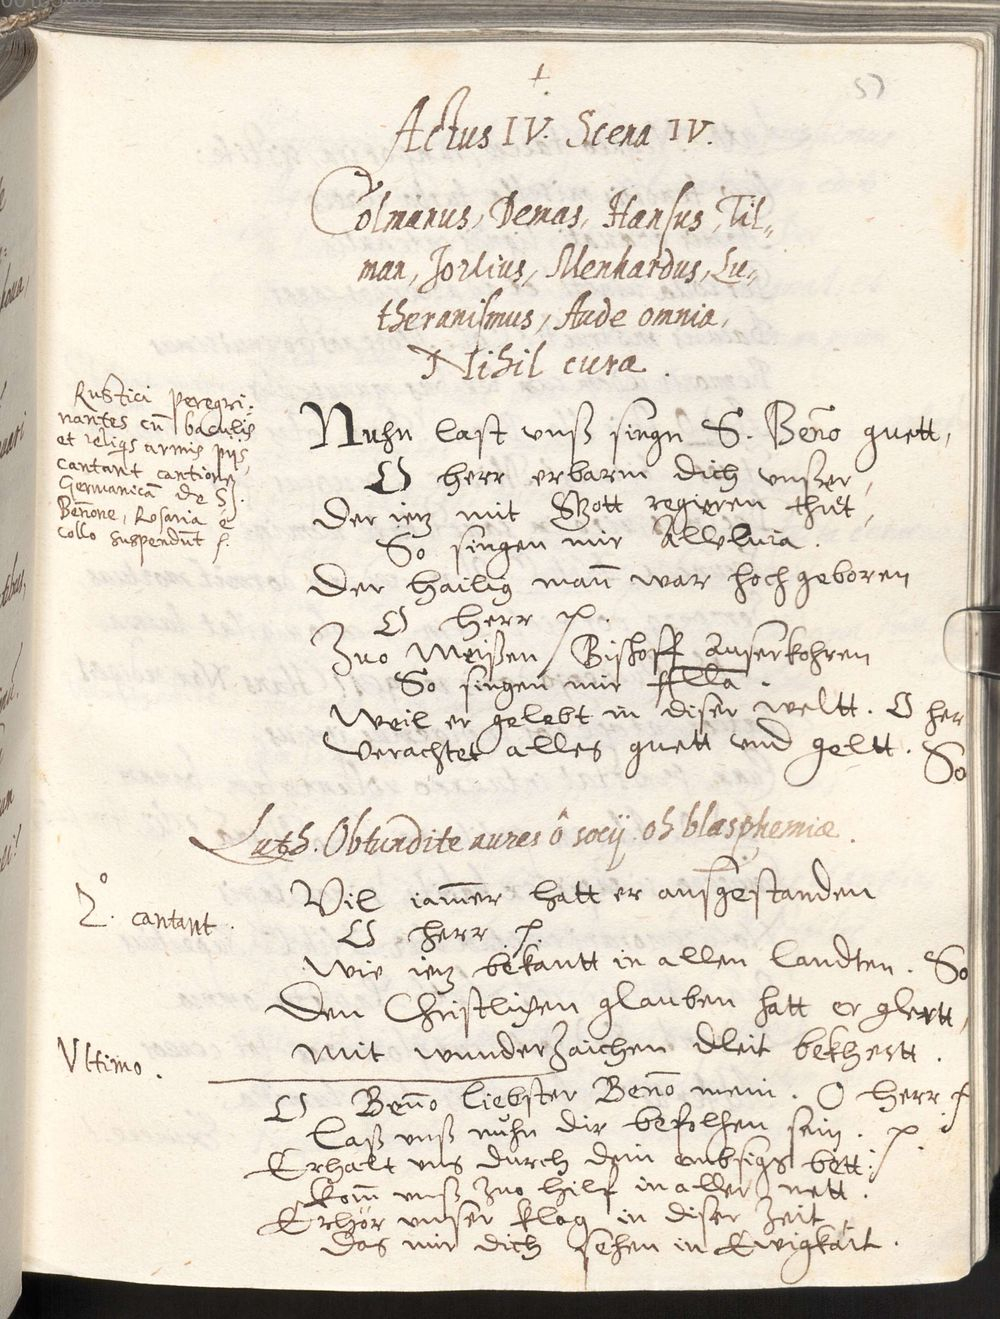 57
Actus IV. Scena IV.
Colmanus, Demas, Hansus, Til„
man, Jorlius, Menhardus, Lu„
theranismus, Aude omnia,
Nihil cura.
Rustici peregri:
nantes cū baculis
et religs armis pijs
cantant cantionē
Germanicā de S.
Bennone, Rosaria ē
collo suspendūt
Nuhn last vnß singn S. Beño guett,
O herr erbarm dich vnßer,
Der iez mit Gott regieren thut,
So singen mir Alleluia.
Der hailig mañ war hochgeboren
O herr
Zuo Meißen Bischoff auserkohren
So singen mir Alla.
Weil er gelebt in diser weltt. O her
Verachtet alles guett vnd geltt. So
Luth. Obtundite aures ô socij oh blasphemiæ.
2.° cantant.
Vil iam̄er hatt er ausgestanden
O herr
Wie iez bekantt in allen landten. So
Den Christligen glauben hatt er glertt,
Mit wunderzaichen dleit bekhertt.
Vltimo.
O Beño liebster Beño mein. O herr
Laß vnß nuhn dir befolhen sein.
Erhalt vns durch dein embsigs bett:
kom̄ vnß zuo hilf in aller nett.
Erhör vnser klag in diser Zeit
Das mir dich sehen in Ewigkait.